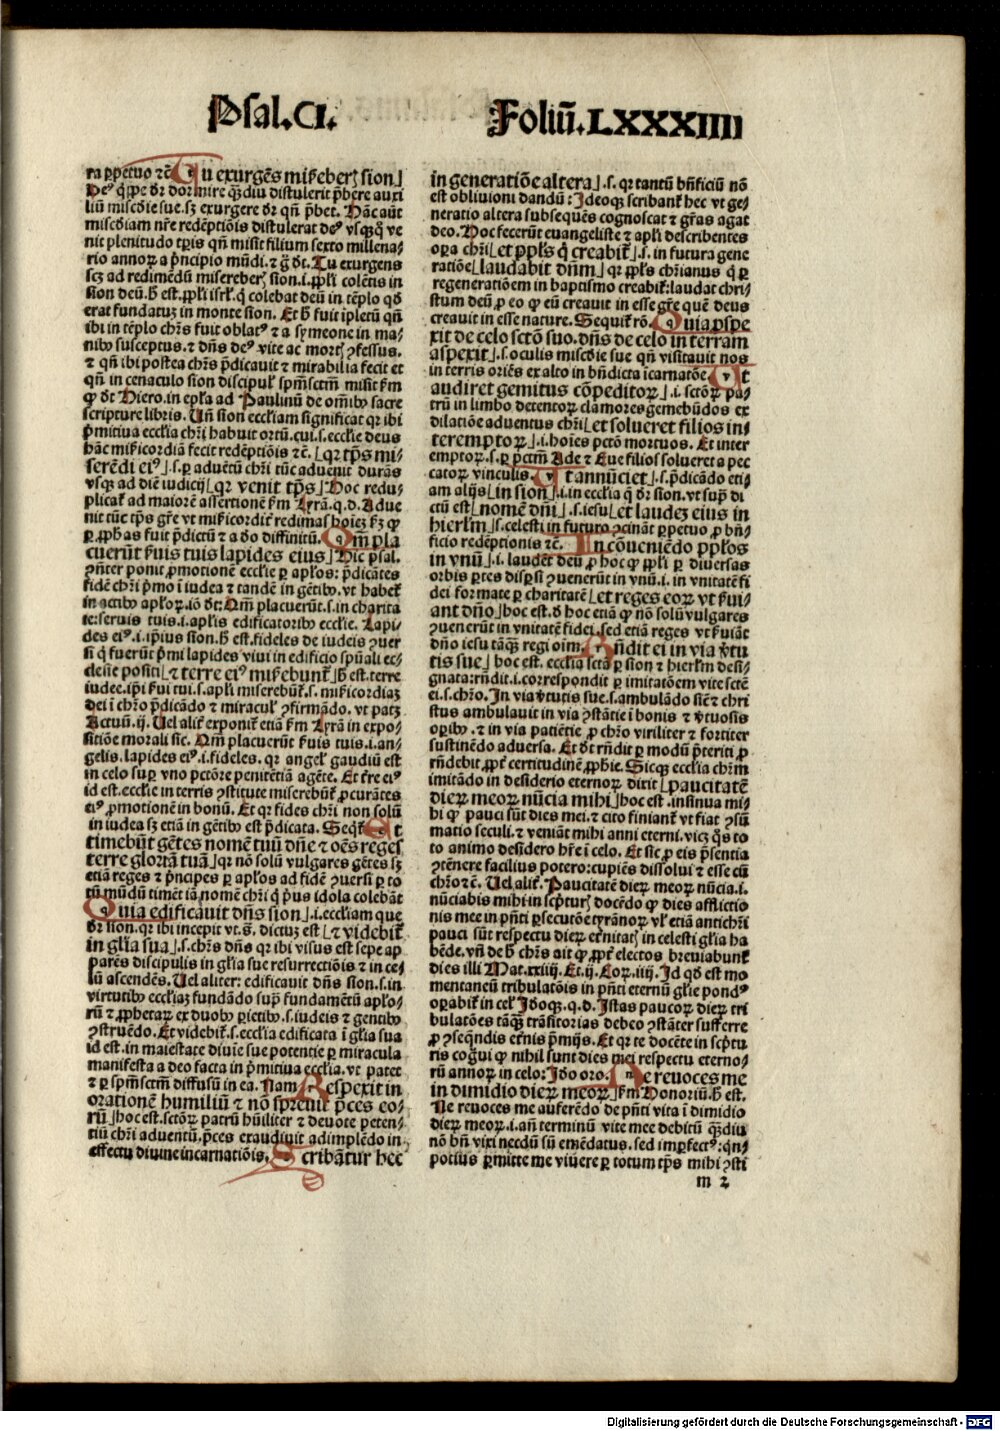 Psal.CI. Foliũ.LXXXIIII
ra ꝑpetuo ⁊c̃ Tu exurgẽs miẜebeř sion
Deꝰ q̇ppe dr̃ dormire qm̃diu distulerit p̃bere auxi
liũ miscďie sue.sꝫ exurgere dr̃ qñ p̃bet. Hãc aũt
miscďiam nr̃e redẽptiõis distulerat deꝰ vsqꝫqͥ ve
nit plenitudo tp̃is qñ misit filium sexto millena/
rio annoꝝ a p̃ncipio mũdi.⁊ g̃ dt̃. Tu exurgens
scꝫ ad redimẽdũ misereberꝭ sion.i.pp̃li colẽtis in
sion deũ.h̃ est.pp̃li isrl̃.q̇ colebat deũ in tẽplo qd̃
erat fundatuꝫ in monte sion. Et h̃ fuit ip̃letũ qñ
ibi in tẽplo chr̃s fuit oblatꝰ ⁊ a symeone in ma/
nibꝰ susceptus.⁊ dñs deꝰ vite ac mortꝭ ꝯfessus.
⁊ qñ ibi postea chr̃s p̃dicauit ⁊ mirabilia fecit et
qñ in cenaculo sion discipuł sp̃msctm̃ misit ẜm
ꝙ dt̃ Hiero.in ep̃ła ad Paulinũ de oĩbꝰ sacre
scripture libris. Uñ sion eccl̃iam significat qꝛ ibi
p̃mitiua eccl̃ia chr̃i habuit ortũ.cui.s.eccl̃ie deus
hãc miẜicordiã fecit redẽptiõis ⁊c̃. qꝛ tp̃s mi/
serẽdi eiꝰ .s.ꝑ aduẽtũ chr̃i tũc aduenit durãs
vsqꝫ ad diẽ iudicij qꝛ venit tp̃s Hoc redu/
plicaṫ ad maiorẽ assertionẽ ẜm Lyrã.q.d. Adue
nit tũc tp̃s gr̃e vt miẜicordiṫ redimas hoieꝫ ẜꝫ ꝙ
ꝑ ꝓph̃as fuit p̃dictũ ⁊ a do diffinitũ. Qm̃ pla
cuerũt ẜuis tuis lapides eius Hic psal.
ꝯñter ponit ꝓmotionẽ eccl̃ie ꝑ apl̃os: p̃dicãtes
fidẽ chr̃i p̃mo ĩ iudea ⁊ tandẽ in gẽtibꝰ.vt habeṫ
in actibꝰ apl̃oꝝ.iõ dt̃: Qm̃ placuerũt.s.in charita
te: seruis tuis.i.apl̃is edificatoribꝰ eccl̃ie. Lapi/
des eiꝰ.i.ip̃ius sion.h̃ est.fideles de iudeis ꝯuer
si q̇ fuerũt p̃mi lapides viui in edificio sp̃uali ec/
clesie positi ⁊ terre eiꝰ miẜebunṫ h̃ est.terre
iudee.ip̃i ẜui tui.s.apl̃i miserebũṫ.s.miẜicordiaꝫ
dei ĩ chr̃o p̃dicãdo ⁊ miracuł ꝯfirmãdo.vt patꝫ
Actuũ.ij. Uel aliṫ exponiṫ etiã ẜm Lyrã in expo/
sitiõe morali sic. Qm̃ placuerũt ẜuis tuis.i.an/
gelis.lapides eiꝰ.i.fideles.qꝛ angeł gaudiũ est
in celo suꝑ vno pctõre penitẽtiã agẽte. Et tr̃re eiꝰ
id est.eccl̃ie in terris ꝯstitute miserebũṫ ꝓcurãtes
eiꝰ ꝓmotionẽ in bonũ. Et qꝛ fides chr̃i non solũ
in iudea sꝫ etiã in gẽtibꝰ est p̃dicata. Seqṫ Et
timebũt gẽtes nomẽ tuũ dñe ⁊ oẽs reges
terre gloriã tuã qꝛ nõ solũ vulgares gẽtes sꝫ
etiã reges ⁊ p̃ncipes ꝑ apl̃os ad fidẽ ꝯuersi ꝑ to
tũ mũdũ timẽt iã nomẽ chr̃i q̇ p̃us idola colebãt
Quia edificauit dñs sion .i.eccl̃iam que
dr̃ sion.qꝛ ibi incepit vt.s̃. dictuꝫ est ⁊ videbiṫ
in gl̃ia sua .s.chr̃s dñs qꝛ ibi visus est sepe ap
parẽs discipulis in gl̃ia sue resurrectiõis ⁊ in ce/
lũ ascendẽs. Uel aliter: edificauit dñs sion.s.in
virtutibꝰ eccl̃iaꝫ fundãdo suꝑ fundamẽtũ apl̃o/
rũ ⁊ ꝓphetaꝝ ex duobꝰ ꝑietibꝰ.s.iudeis ⁊ gentibꝰ
ꝯstruẽdo. Et videbiṫ.s.eccl̃ia edificata ĩ gl̃ia sua
id est.in maiestate diuie sue potentie ꝑ miracula
manifesta a deo facta in p̃mitiua eccl̃ia.vt patet
⁊ ꝑ sp̃msctm̃ diffusũ in ea. Nam Respexit in
orationẽ humiliũ ⁊ nõ spreuit p̃ces eo/
rũ hoc est.sctõꝝ patrũ hũiliter ⁊ deuote peten/
tiũ chr̃i aduentũ.p̃ces exaudiuit adimplẽdo in
effectu diuine incarnatiõis. Scribãtur hec
in generatiõe altera .s.qꝛ tantũ bñficiũ nõ
est obliuioni dandũ: Jdeoqꝫ scribanṫ hec vt ge/
neratio altera subsequẽs cognoscat ⁊ gr̃as agat
deo. Hoc fecerũt euangeliste ⁊ apl̃i describentes
oꝑa chr̃i et pp̃l̃s q̇ creabiṫ .s.in futura gene
ratiõe laudabit dñm qꝛ pp̃l̃s chr̃ianus q̇ ꝑ
regenerationẽ in baptismo creabiṫ: laudat chri/
stum deũ ꝓ eo ꝙ eũ creauit in esse gr̃e quẽ deus
creauit in esse nature. Sequiṫ rõ. Quia ꝓspe
xit de celo sctõ suo.dñs de celo in terram
aspexit .s.oculis miscďie sue qñ visitauit nos
in terris oriẽs ex alto in bñdicta ĩcarnatõe. Ut
audiret gemitus cõpeditoꝝ .i.sctõꝝ pa/
trũ in limbo detentoꝝ clamores gemebũdos ex
dilatiõe aduentus chr̃i et solueret filios in/
teremptoꝝ .i.hoĩes pctõ mortuos. Et inter
emptoꝝ.s.ꝑ pctm̃ Ade ⁊ Eue filios solueret a pec
catoꝝ vinculis. Ut annũciet .s.p̃dicãdo eti/
am alijs in sion .i.in eccl̃ia q̇ dr̃ sion.vt suꝑ di
ctũ est nomẽ dñi .s.iesu et laudeꝫ eius in
hierl̃m .s.celesti in futuro ꝯcinãt ꝑpetuo ꝓ bñ/
ficio redẽptionis ⁊c̃. In cõueniẽdo pp̃l̃os
in vnũ .i.laudẽt deũ ꝓ hoc ꝙ pp̃li ꝑ diuersas
orbis ꝑtes disꝑsi ꝯuenerũt in vnũ.i.in vnitatẽ fi
dei formate ꝑ charitatẽ et reges eoꝝ vt ẜui/
ant dño hoc est.d̃ hoc etiã ꝙ nõ solũ vulgares
ꝯuenerũt in vnitatẽ fidei.sed etiã reges vt ẜuiãt
dño iesu tãqꝫ regi oim̃. Rñdit ei in via v̇tu
tis sue hoc est.eccl̃ia scta ꝑ sion ⁊ hierl̃m desi/
gnata: rñdit.i.correspondit ꝑ imitatõem vite sctẽ
ei.s.chr̃o. In via v̇tutis sue.s.ambulãdo sic̃ ⁊ chri
stus ambulauit in via ꝯstãtie ĩ bonis ⁊ v̇tuosis
oꝑibꝰ.⁊ in via patiẽtie ꝓ chr̃o viriliter ⁊ fortiter
sustinẽdo aduersa. Et dt̃ rñdit ꝑ modũ p̃teriti ꝓ
rñdebit.ꝓpṫ certitudinẽ ꝓph̃ie. Sicqꝫ eccl̃ia chr̃m
imitãdo in desiderio eternoꝝ dicit paucitatẽ
dieꝝ meoꝝ nũcia mihi hoc est.insinua mi/
hi ꝙ pauci sũt dies mei.⁊ cito finianṫ vt fiat ꝯsũ
matio seculi.⁊ veniãt mihi anni eterni.vicꝫ q̃s to
to animo desidero hr̃e ĩ celo. Et sic ꝓ eis p̃sentia
ꝯtẽnere facilius potero: cupiẽs dissolui ⁊ esse cũ
chr̃o ⁊c̃. Uel aliṫ. Paucitatẽ dieꝝ meoꝝ nũcia.i.
nũciabis mihi in sc̃pturꝭ docẽdo ꝙ dies afflictio
nis mee in pñti ꝑsecutõe tyrãnoꝝ vl̃ etiã antichr̃i
pauci sũt respectu dieꝝ et̃nitatꝭ in celesti gl̃ia ha
bẽde.vñ de h̃ chr̃s ait ꝙ ꝓpṫ electos breuiabunṫ
dies illi Mat.xxiiij. Et.ij. Coꝝ.iiij. Jd qd̃ est mo
mentaneũ tribulatõis in pñti eternũ gl̃ie pondꝰ
oꝑabiṫ in ceł Jdoqꝫ.q.d. Jstas paucoꝝ dieꝝ tri
bulatões tãqꝫ trãsitorias debeo ꝯstãter sufferre
ꝓ ꝯseqñdis et̃nis p̃mijs. Et qꝛ te docẽte in sc̃ptu
ris cog̃ui ꝙ nihil sunt dies mei respectu eterno/
rũ annoꝝ in celo: Jdo oro. Ne reuoces me
in dimidio dieꝝ meoꝝ ẜm Honoriũ.h̃ est.
Ne reuoces me auferẽdo de pñti vita ĩ dimidio
dieꝝ meoꝝ.i.añ terminũ vite mee debitũ qm̃diu
nõ bñ vixi necdũ sũ emẽdatus.sed imꝑfectꝰ: qñ/
potius ꝑmitte me viuere ꝑ totum tp̃s mihi ꝯsti
m 2
Digitalisierung gefördert durch die Deutsche Forschungsgemeinschaft - DFG